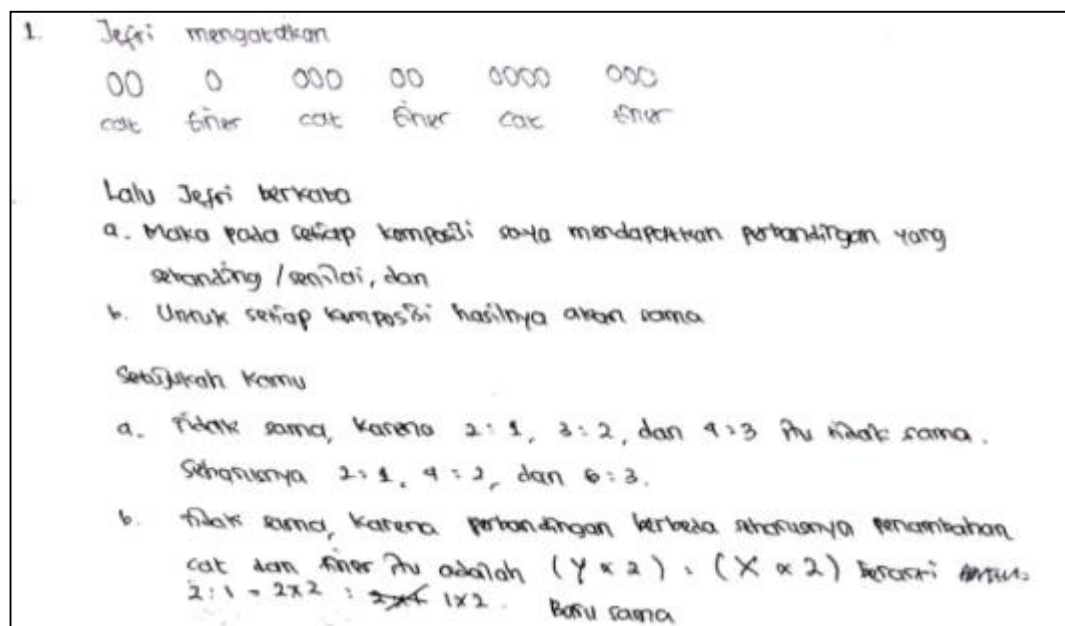 1. Jefri mengatakan
00 0 000 00 0000 000
cat tiner cat tiner cat tiner
Lalu Jefri berkata
a. Maka pada setiap komposisi saya mendapatkan perbandingan yang
sebanding / senilai, dan
b. Untuk setiap komposisi hasilnya akan sama
Setujukah Kamu
a. Tidak sama, karena 2:1, 3:2, dan 4:3 itu tidak sama.
Seharusnya 2:1, 4:2, dan 6:3.
b. tidak sama, karena perbandingan berbeda seharusnya penambahan
cat dan tiner itu adalah (Y x 2) : (X x 2) berarti
2:1 = 2x2 : 1x2. Baru sama